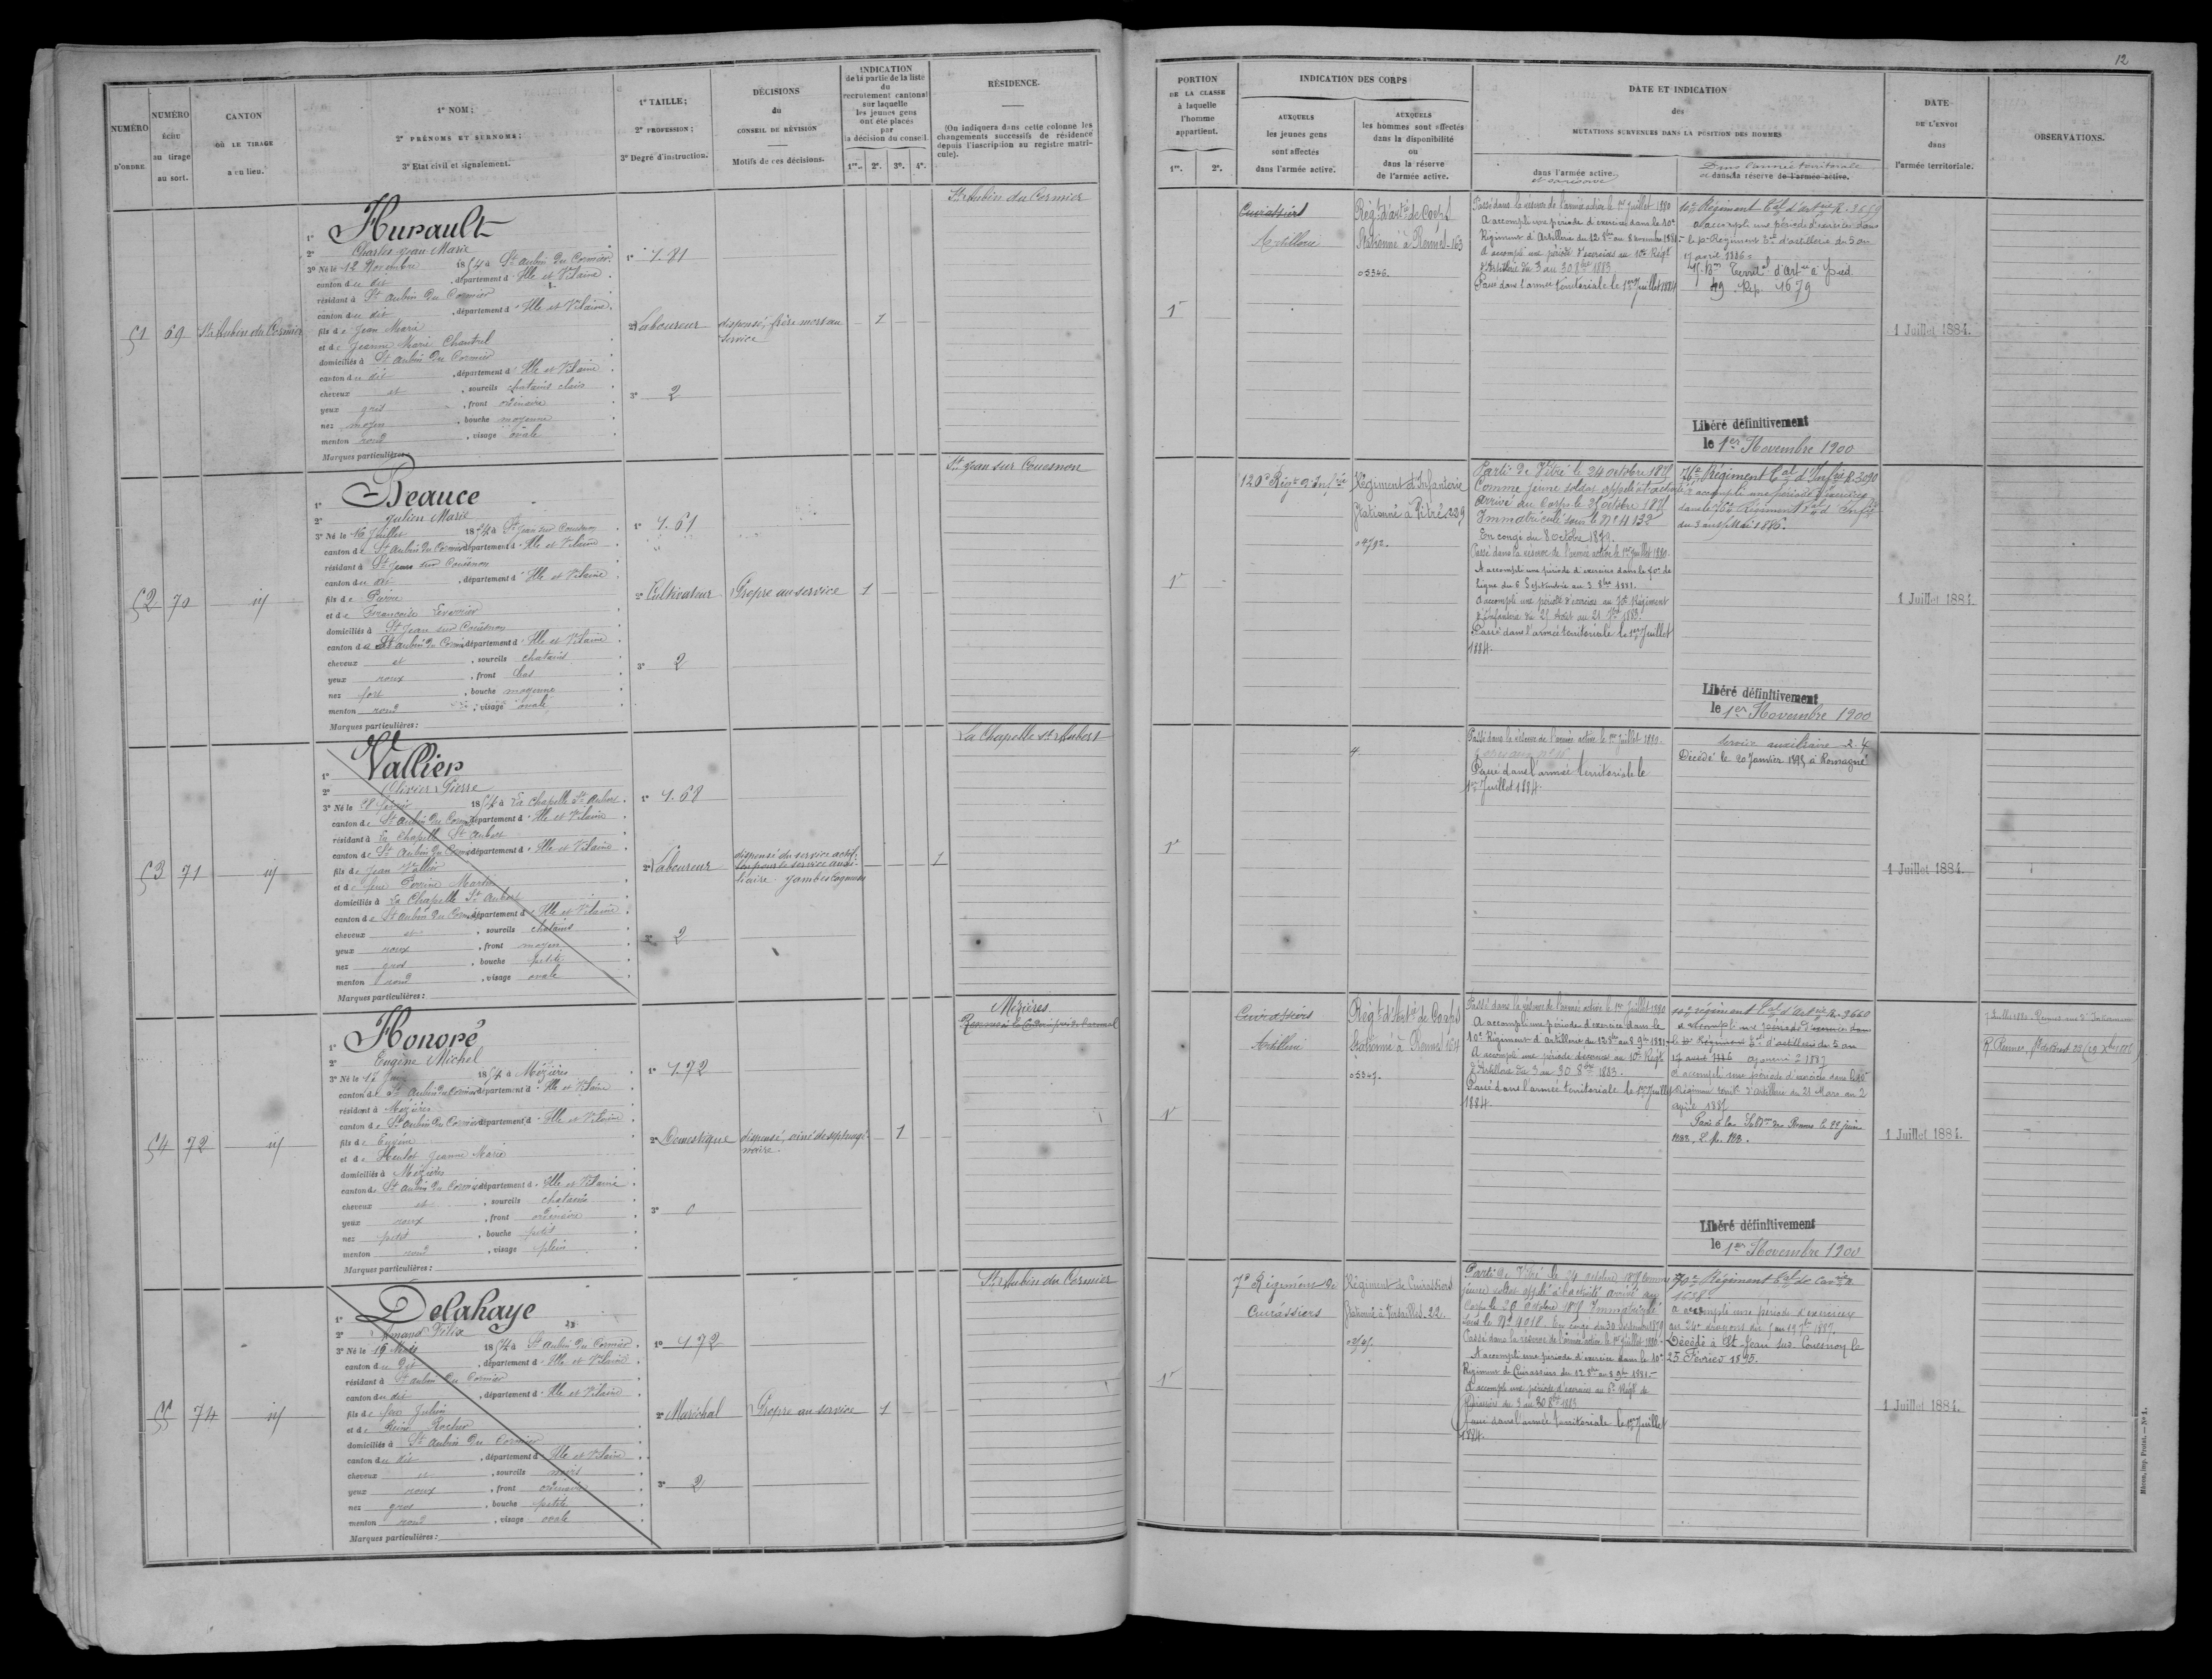 12
NUMÉRO D'ORDRE
NUMÉRO écrit au tirage au sort.
CANTON OÙ LE TIRAGE a eu lieu.
1º NOM;
2º PRÉNOMS ET SURNOMS;
3º Etat civil et signalement.
1º TAILLE;
2º PROFESSION;
3º Degré d'instruction.
DÉCISIONS
du
CONSEIL DE RÉVISION
Motifs de ces décisions.
INDICATION
de la partie de la liste
du
recrutement cantonal
sur laquelle
les jeunes gens
ont été placés
par
la décision du conseil.
1re. 2e. 3e. 4e.
RÉSIDENCE.
(On indiquera dans cette colonne les
changements successifs de résidence
depuis l'inscription au registre matri-
cule).
PORTION
DE LA CLASSE
à laquelle
l'homme
appartient.
1re. 2e.
INDICATION DES CORPS
AUXQUELS
les jeunes gens
sont affectés
dans l'armée active.
AUXQUELS
les hommes sont affectés
dans la disponibilité
ou
dans la réserve
de l'armée active.
DATE ET INDICATION
des
MUTATIONS SURVENUES DANS LA POSITION DES HOMMES
dans l'armée active.
et sa réserve
Dans l'armée territoriale
et dans sa réserve de l'armée active.
DATE
DE L'ENVOI
dans
l'armée territoriale.
OBSERVATIONS.
51 69 St Aubin du Cormier
1º Hurault
2º Charles Jean Marie
3º Né le 12 Novembre 1854 à St Aubin du Cormier
canton du dit, département d'Ille et Vilaine.
résidant à St Aubin du Cormier
canton du dit, département d'Ille et Vilaine.
fils de Jean Marie
et de Jeanne Marie Chantrel
domiciliés à St Aubin du Cormier
canton du dit, département d'Ille et Vilaine
cheveux et, sourcils chatains clairs
yeux gris, front ordinaire
nez moyen, bouche moyenne
menton rond, visage ovale
Marques particulières:
1º 1.81
2º Laboureur
3º 2
dispensé, frère mort au
service
1
St Aubin du Cormier
1re
Cuirassiers
Artillerie
Régt d'artie de Corps
Stationné à Rennes 163
05346.
Passé dans la réserve de l'armée active le 1er Juillet 1880
A accompli une période d'exercices dans le 10e
Régiment d'Artillerie du 12 8bre au 8 novembre 1881.
A accompli une période d'exercices au 10e Régt
d'Artillerie du 3 au 30 8bre 1883.
Passé dans l'armée territoriale le 1er Juillet 1884
10e Régiment tal d'artrie R. 3659
a accompli une période d'exercices dans
le 10e Régiment tal d'artillerie du 5 au
17 avril 1886.
49 Rép. 1679
1 Juillet 1884.
Libéré définitivement
le 1er Novembre 1900
52 70 id
1º Beauce
2º Julien Marie
3º Né le 16 Juillet 1854 à St Jean sur Couesnon
canton de St Aubin du Cormier département d'Ille et Vilaine
résidant à St Jean sur Couesnon
canton du dit, département d'Ille et Vilaine
fils de Pierre
et de Françoise
domiciliés à St Jean sur Couesnon
canton de St Aubin du Cormier département d'Ille et Vilaine
cheveux et, sourcils chatains
yeux roux, front bas
nez fort, bouche moyenne
menton rond, visage ovale
Marques particulières:
1º 1.61
2º Cultivateur
3º 2
Propre au service
1
St Jean sur Couesnon
1re
120e Régt d'Infrie
Régiment d'Infanterie
Stationné à Vitré 229
04792.
Parti de Vitré le 24 octobre 1875
Comme jeune soldat appelé à l'activité
Arrivé au Corps le 25 octobre 1875
Immatriculé sous le Nº 4132
En congé du 8 octobre 1879.
Passé dans la réserve de l'armée active le 1er Juillet 1880.
A accompli une période d'exercices dans le 70e de
ligne du 6 Septembre au 3 8bre 1881.
A accompli une période d'exercices au 70e Régiment
d'Infanterie du 25 Août au 21 7bre 1883.
Passé dans l'armée territoriale le 1er Juillet
1884.
76e Régiment tal d'Infrie R. 3090
a accompli une période d'exercices
dans le 76e Régiment tal d'Infie
du 3 au 15 Mai 1886.
1 Juillet 1884.
Libéré définitivement
le 1er Novembre 1900
53 71 id
1º Vallier
2º Olivier Pierre
3º Né le 28 février 1854 à La Chapelle St Aubert
canton de St Aubin du Cormier département d'Ille et Vilaine
résidant à La Chapelle St Aubert
canton de St Aubin du Cormier département d'Ille et Vilaine
fils de Jean Vallier
et de feue Perrine Martin
domiciliés à La Chapelle St Aubert
canton de St Aubin du Cormier département d'Ille et Vilaine
cheveux et, sourcils chatains
yeux roux, front moyen
nez gros, bouche petite
menton rond, visage ovale
Marques particulières:
1º 1.68
2º Laboureur
3º 2
dispensé du service actif.
bon pour le service auxi-
liaire. Jambes cagneuses
1
La Chapelle St Aubert
1re
4
Passé dans la réserve de l'armée active le 1er Juillet 1880.
Passé dans l'armée territoriale le
1er Juillet 1884.
Service auxiliaire 2.4
Décédé le 20 Janvier 1895, à Romagné
1 Juillet 1884.
54 72 id
1º Honoré
2º Eugène Michel
3º Né le 17 Juin 1854 à Mézières
canton de St Aubin du Cormier département d'Ille et Vilaine
résidant à Mézières
canton de St Aubin du Cormier département d'Ille et Vilaine
fils de Eugène
et de Heulot Jeanne Marie
domiciliés à Mézières
canton de St Aubin du Cormier département d'Ille et Vilaine
cheveux et, sourcils chatains
yeux roux, front ordinaire
nez petit, bouche petite
menton rond, visage plein
Marques particulières:
1º 1.72
2º Domestique
3º 0
dispensé, ainé de septuagé-
naire.
1
Mézières
1re
Cuirassiers
Artillerie
Régt d'artie de Corps
Stationné à Rennes 164
05347.
Passé dans la réserve de l'armée active le 1er Juillet 1880
A accompli une période d'exercice dans le
10e Régiment d'Artillerie du 12 8bre au 8 9bre 1881.
A accompli une période d'exercices au 10e Régt
d'Artillerie du 3 au 30 8bre 1883.
Passé dans l'armée territoriale le 1er Juillet
1884.
10e régiment tal d'artrie R. 3660
a accompli une période d'exercices dans
le 10e Régiment tal d'artillerie du 5 au
17 avril 1886 ajourné à 1887
A accompli une période d'exercices dans le 10e
Régiment territ. d'artillerie du 21 Mars au 2
avril 1887
1 Juillet 1884.
Libéré définitivement
le 1er Novembre 1900
55 74 id
1º Delahaye
2º Amand Félix
3º Né le 19 Mars 1854 à St Aubin du Cormier
canton du dit, département d'Ille et Vilaine
résidant à St Aubin du Cormier
canton du dit, département d'Ille et Vilaine
fils de feu Julien
et de Reine Rocher
domiciliés à St Aubin du Cormier
canton du dit, département d'Ille et Vilaine
cheveux et, sourcils noirs
yeux roux, front ordinaire
nez gros, bouche petite
menton rond, visage ovale
Marques particulières:
1º 1.72
2º Maréchal
3º 2
Propre au service
1
St Aubin du Cormier
1re
7e Régiment de
Cuirassiers
Régiment de Cuirassiers
Stationné à Versailles. 22.
Parti de Vitré le 24 octobre 1875 comme
jeune soldat appelé à l'activité arrivé au
Corps le 26 octobre 1875 Immatriculé
sous le Nº 1918. En congé du 30 septembre 1879
Passé dans la réserve de l'armée active le 1er Juillet 1880.
A accompli une période d'exercice dans le 10e
Régiment de Cuirassiers du 12 8bre au 8 9bre 1881.
A accompli une période d'exercices au 6e Régt de
Cuirassiers du 3 au 30 8bre 1883
Passé dans l'armée territoriale le 1er Juillet
1884.
10e Régiment tal de Cavrie R.
1658.
a accompli une période d'exercices
au 24e dragons du 5 au 17 7bre 1887.
Décédé à St Jean sur Couesnon le
25 Février 1895.
1 Juillet 1884.
Mâcon, imp. Protat. — Nº 1.